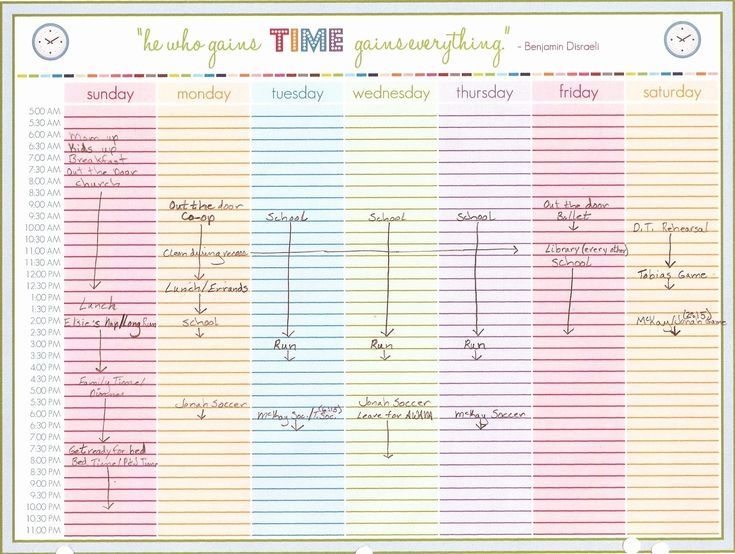 "he who gains TIME gains everything." - Benjamin Disraeli
sunday monday tuesday wednesday thursday friday saturday
5:00 AM
5:30 AM
6:00 AM
6:30 AM
7:00 AM
7:30 AM
8:00 AM
8:30 AM
9:00 AM
9:30 AM
10:00 AM
10:30 AM
11:00 AM
11:30 AM
12:00 PM
12:30 PM
1:00 PM
1:30 PM
2:00 PM
2:30 PM
3:00 PM
3:30 PM
4:00 PM
4:30 PM
5:00 PM
5:30 PM
6:00 PM
6:30 PM
7:00 PM
7:30 PM
8:00 PM
8:30 PM
9:00 PM
9:30 PM
10:00 PM
10:30 PM
11:00 PM
Mom up
Kids up
Breakfast
Out the Door
Church
Lunch
Elsie's Nap/Long Run
Family Time/
Dinner
Get ready for bed
Bed Time/ Time
Out the door
Co-op
Clean during recess
Lunch/Errands
School
Jonah Soccer
School
Run
McKay Soc./T. Soc.
School
Run
Jonah Soccer
Leave for AWANA
School
Run
McKay Soccer
Out the door
Ballet
Library (every other)
School
D.T. Rehearsal
Tobias Game
McKay/Jonah Game